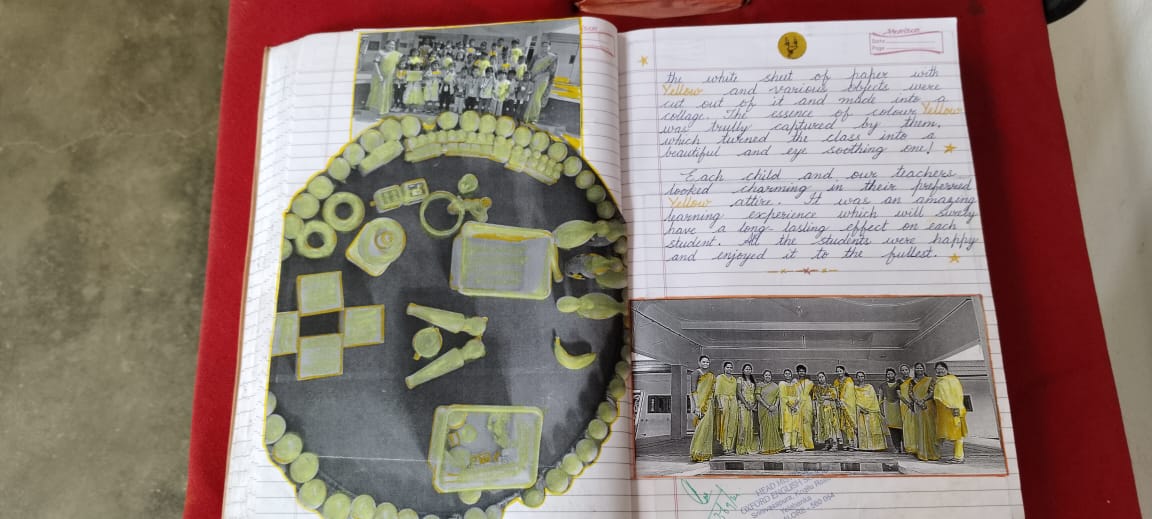 the white sheet of paper with
Yellow and various objects were
cut out of it and made into a
collage. The essence of colour Yellow
was trully captured by them,
which turned the class into a
beautiful and eye soothing one!
Each child and our teachers
looked charming in their preferred
Yellow attire. It was an amazing
learning experience which will surely
have a long-lasting effect on each
student. All the students were happy
and enjoyed it to the fullest.
Date
Page
HEAD
OXFORD ENGLISH
Yelahanka
560 064